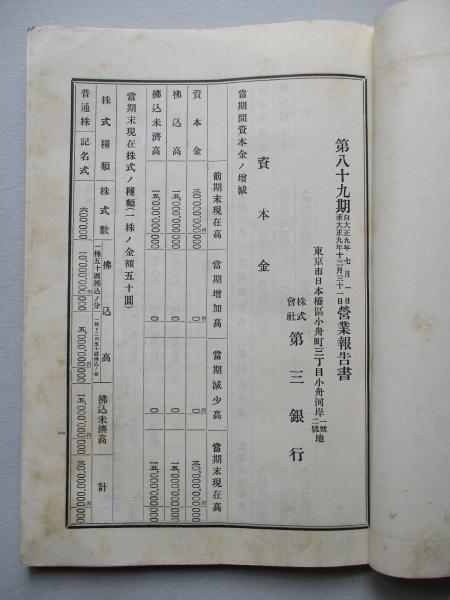 第八十九期 自大正九年七月一日 至大正九年十二月三十一日 營業報告書
東京市日本橋區小舟町三丁目小舟河岸一號二號地
株式會社 第三銀行
資本金
當期間資本金ノ增減
前期末現在高 當期增加高 當期減少高 當期末現在高
資本金 〇 〇
拂込高 一五、〇〇〇、〇〇〇 〇 〇 一五、〇〇〇、〇〇〇
拂込未濟高 一五、〇〇〇、〇〇〇 〇 〇 一五、〇〇〇、〇〇〇
當期末現在株式ノ種類(一株ノ金額五十圓)
株式種類 株式數 拂込高 拂込未濟高 計
一株五十圓拂込ノ分
普通株 記名式 六〇〇、〇〇〇
一